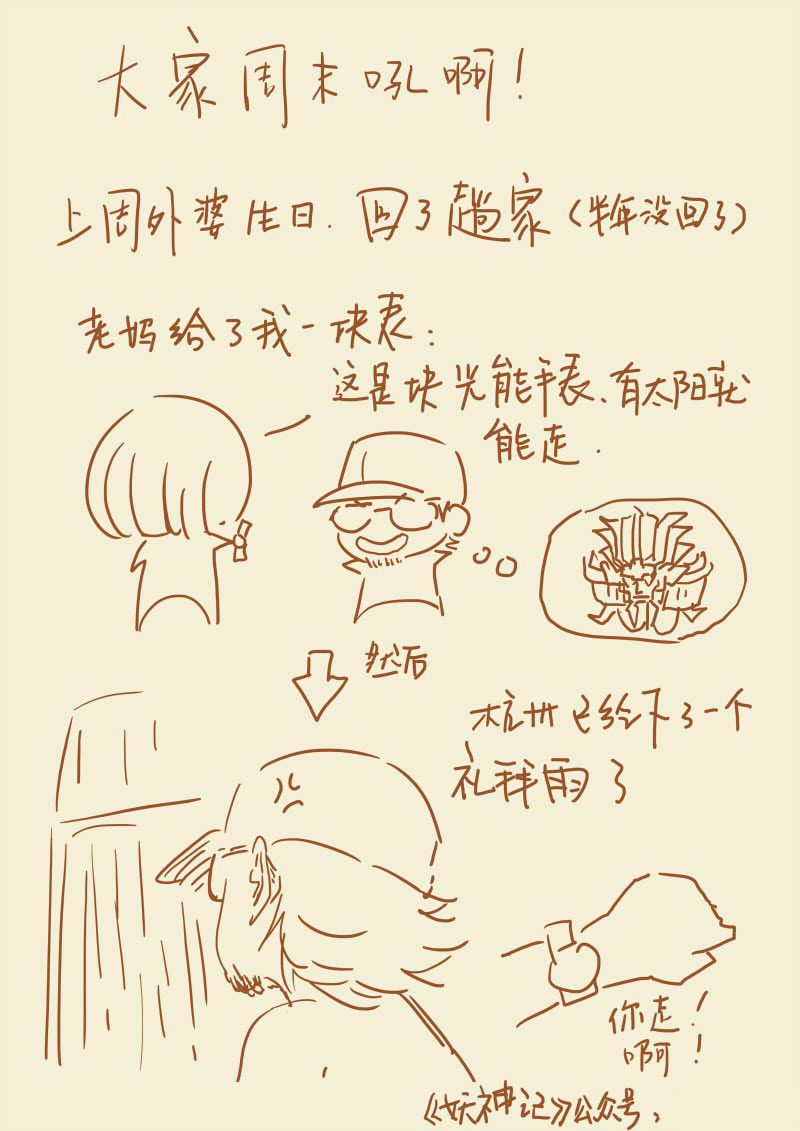 大家周末吼啊！
上周外婆生日．回了趟家（半年没回了）
老妈给了我一块表：
这是块光能手表、有太阳就
能走．
然后
杭州已经下了一个
礼拜雨了
你走！
啊！
《妖神记》公众号、